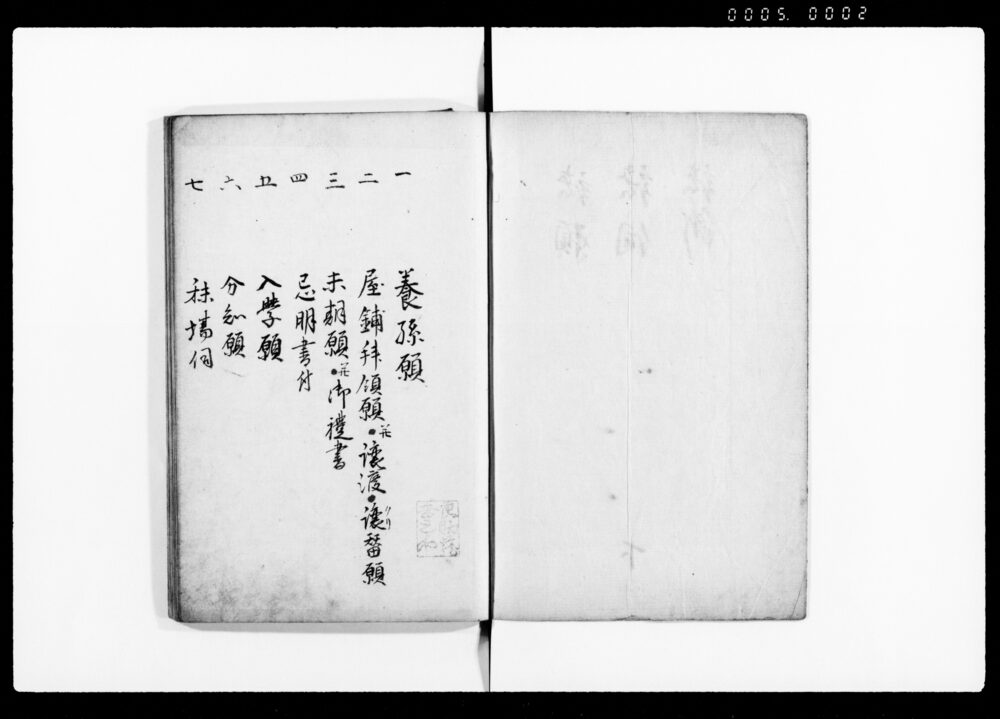 0005. 0002
一 養孫願
二 屋鋪拝領願・并譲渡・譲リ替願
三 未翔願・并御禮書
四 忌明書付
五 入學願
六 分知願
七 秣場伺